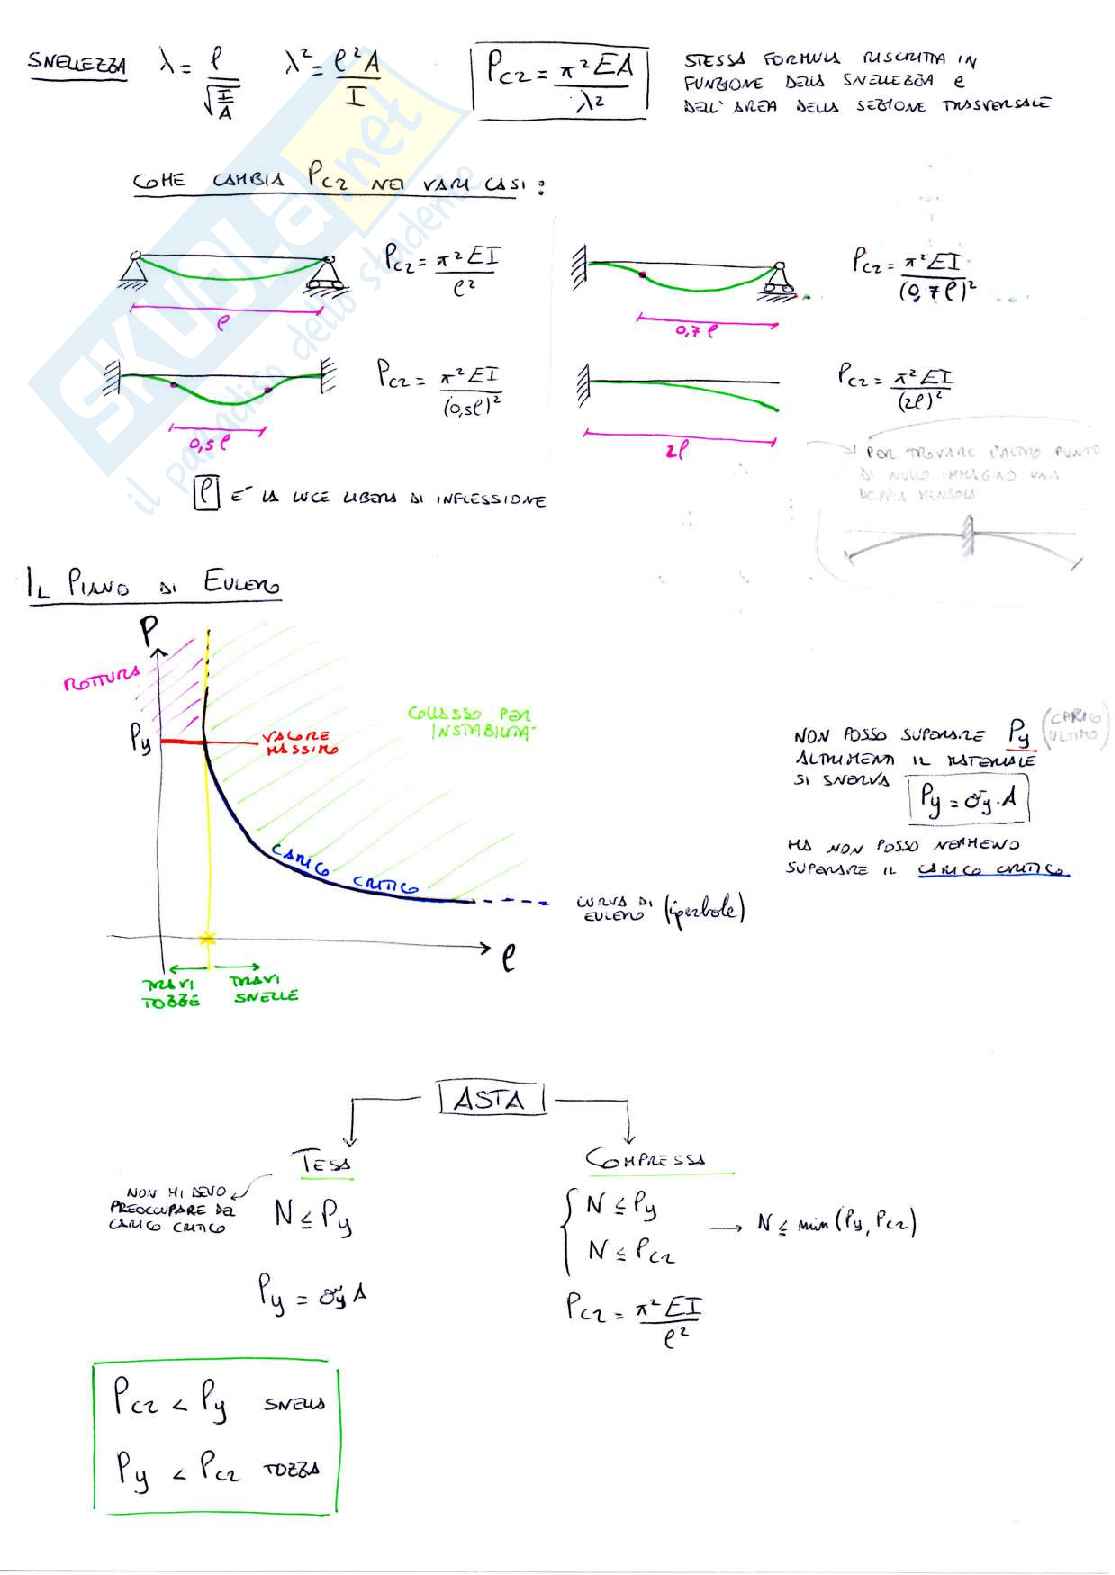 SNELLEZZA λ = ℓ / √(I/A) λ² = ℓ²A / I Pcr = π²EA / λ² STESSA FORMULA RISCRITTA IN
FUNZIONE DELLA SNELLEZZA e
DELL'AREA DELLA SEZIONE TRASVERSALE
COME CAMBIA Pcr NEI VARI CASI:
Pcr = π²EI / ℓ²
ℓ
Pcr = π²EI / (0,7ℓ)²
0,7ℓ
Pcr = π²EI / (0,5ℓ)²
0,5ℓ
Pcr = π²EI / (2ℓ)²
2ℓ
PER TROVARE L'ALTRO PUNTO
DI NULLO IMMAGINO UNA
DOPPIA MENSOLA
ℓ E' LA LUCE LIBERA DI INFLESSIONE
IL PIANO DI EULERO
P
ROTTURA
Py
VALORE
MASSIMO
COLLASSO PER
INSTABILITA'
CARICO CRITICO
CURVA DI
EULERO (iperbole)
ℓ
TRAVI
TOZZE
TRAVI
SNELLE
NON POSSO SUPERARE Py (CARICO
ULTIMO)
ALTRIMENTI IL MATERIALE
SI SNERVA Py = σy · A
MA NON POSSO NEMMENO
SUPERARE IL CARICO CRITICO
ASTA
TESA
NON MI DEVO
PREOCCUPARE DEL
CARICO CRITICO
N ≤ Py
Py = σy A
COMPRESSA
N ≤ Py
N ≤ Pcr
→ N ≤ min (Py, Pcr)
Pcr = π²EI / ℓ²
Pcr < Py SNELLA
Py < Pcr TOZZA
SKUOLA.net
il paradiso dello studente